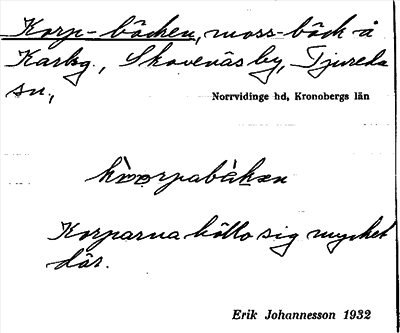 Korp-bäcken, moss-bäck å
Karlsg., Skavenäs by, Tjureda
sn,
Norrvidinge hd, Kronobergs län
Korparna hålla sig mycket
där.
Erik Johannesson 1932